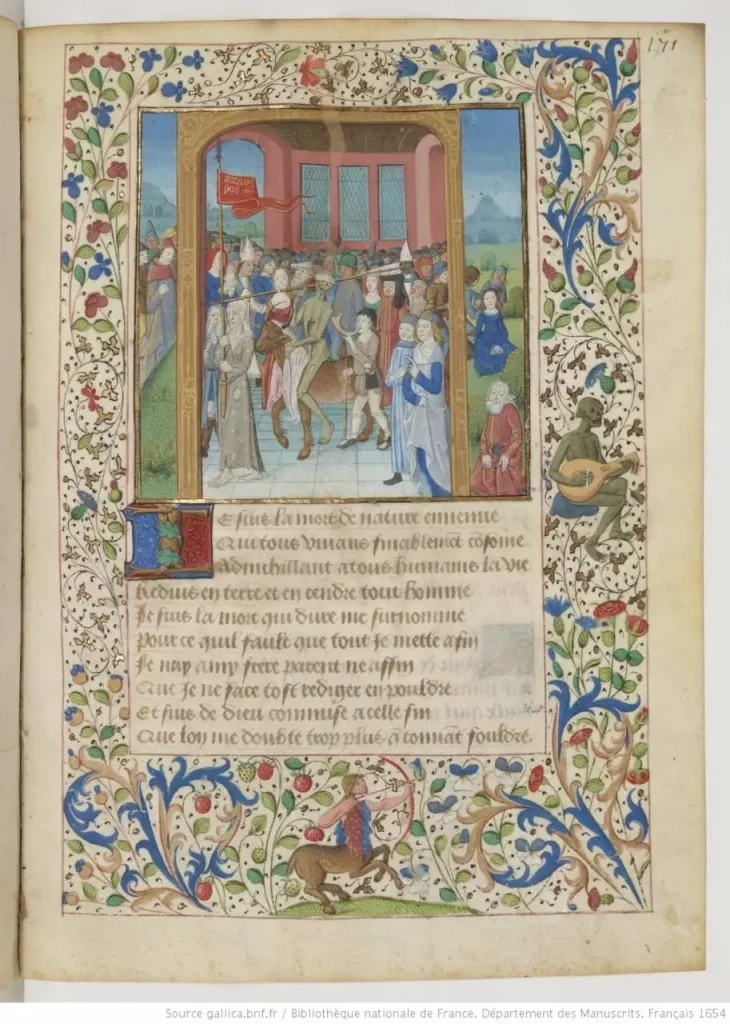 171
E suis la mort de nature ennemie
Qui tous vivans finablemēt cōsome
Adnichillant a tous humains la vie
Redius en terre et en cendre tout homme
Je suis la mort qui dure me surnomme
Pour ce quil fault que tout je mette a fin
Je nay amy frere parent ne affin
Que je ne face tost rediger en pouldre
Et suis de dieu commise a celle fin
Que lon me doubte trop plus q̄ tonnāt fouldre.
Source gallica.bnf.fr / Bibliothèque nationale de France. Département des Manuscrits. Français 1654